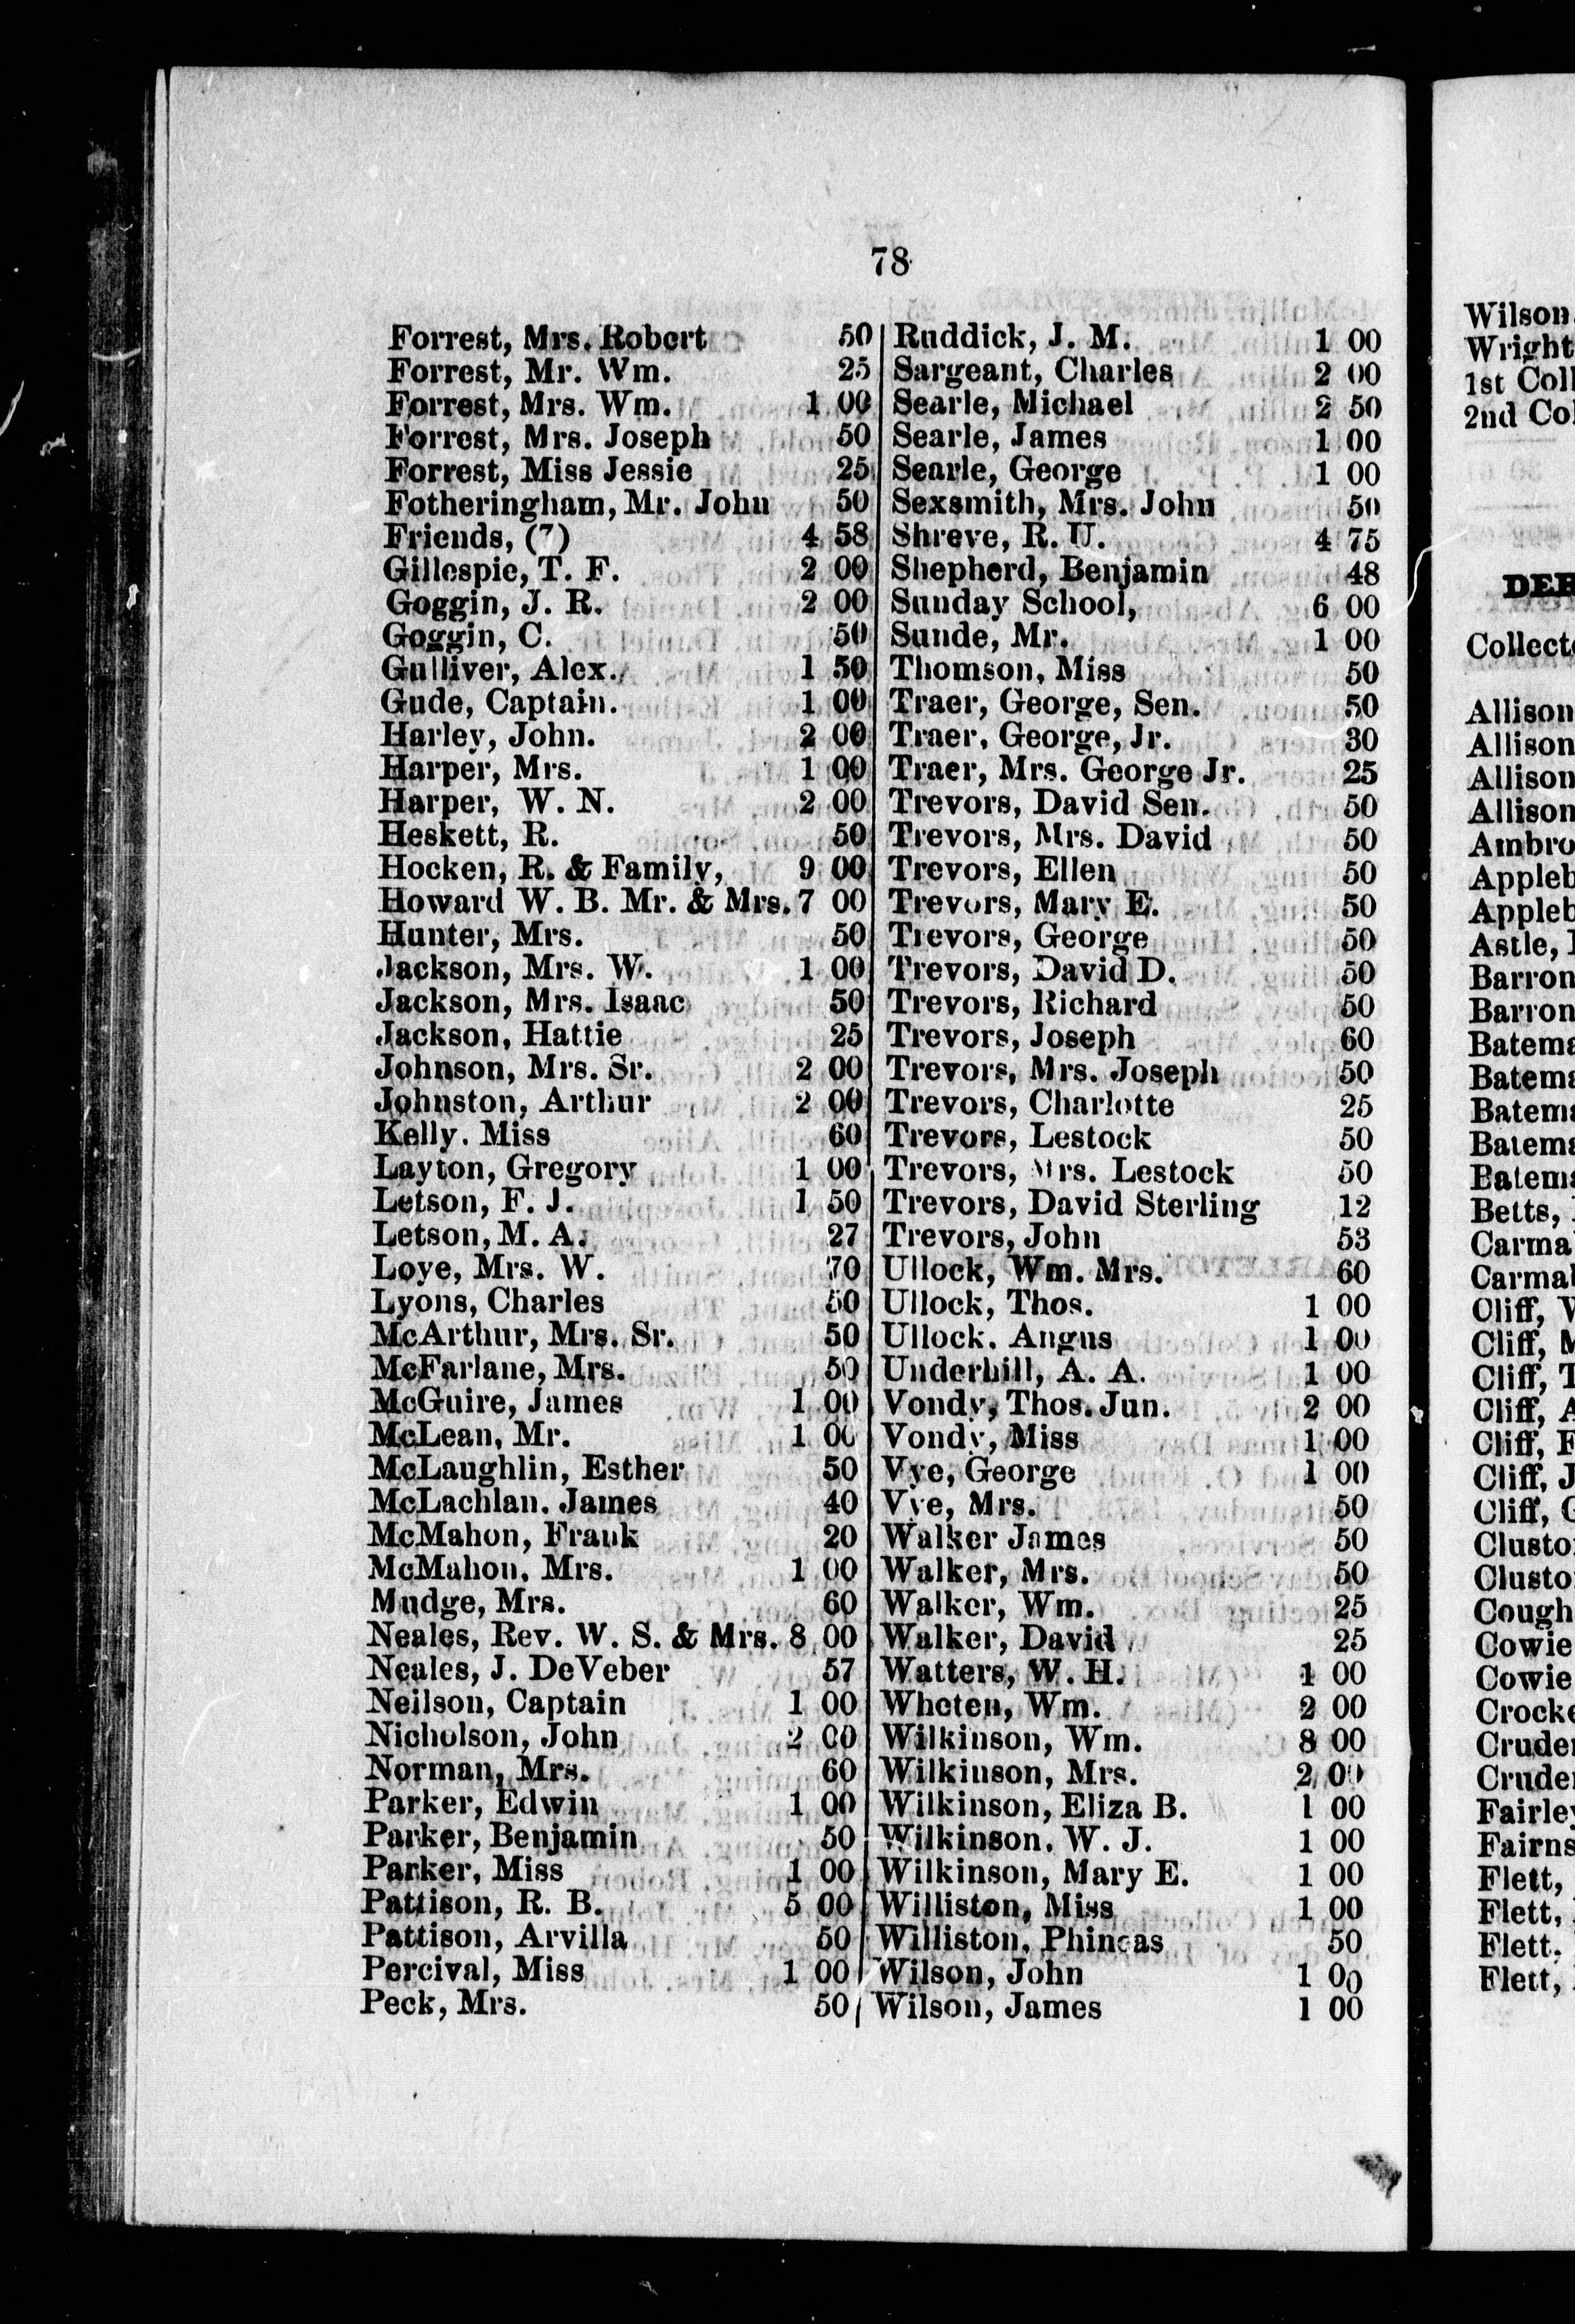 78
Forrest, Mrs. Robert 50
Forrest, Mr. Wm. 25
Forrest, Mrs. Wm. 1 00
Forrest, Mrs. Joseph 50
Forrest, Miss Jessie 25
Fotheringham, Mr. John 50
Friends, (7) 4 58
Gillespie, T. F. 2 00
Goggin, J. R. 2 00
Goggin, C. 50
Gulliver, Alex. 1 50
Gude, Captain. 1 00
Harley, John. 2 00
Harper, Mrs. 1 00
Harper, W. N. 2 00
Heskett, R. 50
Hocken, R. & Family, 9 00
Howard W. B. Mr. & Mrs. 7 00
Hunter, Mrs. 50
Jackson, Mrs. W. 1 00
Jackson, Mrs. Isaac 50
Jackson, Hattie 25
Johnson, Mrs. Sr. 2 00
Johnston, Arthur 2 00
Kelly. Miss 60
Layton, Gregory 1 00
Letson, F. J. 1 50
Letson, M. A. 27
Loye, Mrs. W. 70
Lyons, Charles 50
McArthur, Mrs. Sr. 50
McFarlane, Mrs. 50
McGuire, James 1 00
McLean, Mr. 1 00
McLaughlin, Esther 50
McLachlan. James 40
McMahon, Frank 20
McMahon, Mrs. 1 00
Mudge, Mrs. 60
Neales, Rev. W. S. & Mrs. 8 00
Neales, J. DeVeber 57
Neilson, Captain 1 00
Nicholson, John 2 00
Norman, Mrs. 60
Parker, Edwin 1 00
Parker, Benjamin 50
Parker, Miss 1 00
Pattison, R. B. 5 00
Pattison, Arvilla 50
Percival, Miss 1 00
Peck, Mrs. 50
Ruddick, J. M. 1 00
Sargeant, Charles 2 00
Searle, Michael 2 50
Searle, James 1 00
Searle, George 1 00
Sexsmith, Mrs. John 50
Shreve, R. U. 4 75
Shepherd, Benjamin 48
Sunday School, 6 00
Sunde, Mr. 1 00
Thomson, Miss 50
Traer, George, Sen. 50
Traer, George, Jr. 30
Traer, Mrs. George Jr. 25
Trevors, David Sen. 50
Trevors, Mrs. David 50
Trevors, Ellen 50
Trevors, Mary E. 50
Trevors, George 50
Trevors, David D. 50
Trevors, Richard 50
Trevors, Joseph 60
Trevors, Mrs. Joseph 50
Trevors, Charlotte 25
Trevors, Lestock 50
Trevors, Mrs. Lestock 50
Trevors, David Sterling 12
Trevors, John 53
Ullock, Wm. Mrs. 60
Ullock, Thos. 1 00
Ullock. Angus 1 00
Underhill, A. A. 1 00
Vondy, Thos. Jun. 2 00
Vondy, Miss 1 00
Vye, George 1 00
Vye, Mrs. 50
Walker James 50
Walker, Mrs. 50
Walker, Wm. 25
Walker, David 25
Watters, W. H. 1 00
Wheten, Wm. 2 00
Wilkinson, Wm. 8 00
Wilkinson, Mrs. 2 00
Wilkinson, Eliza B. 1 00
Wilkinson, W. J. 1 00
Wilkinson, Mary E. 1 00
Williston, Miss 1 00
Williston, Phineas 50
Wilson, John 1 00
Wilson, James 1 00
Wilson
Wright
1st Coll
2nd Col
DER
Collect
Allison
Allison
Allison
Allison
Ambro
Appleb
Appleb
Astle,
Barron
Barron
Batema
Batema
Batema
Batema
Batema
Betts,
Carma
Carmal
Cliff,
Cliff,
Cliff,
Cliff,
Cliff,
Cliff, J
Cliff,
Clusto
Clusto
Cough
Cowie
Cowie
Crocke
Cruder
Cruder
Fairley
Fairns
Flett,
Flett,
Flett.
Flett,